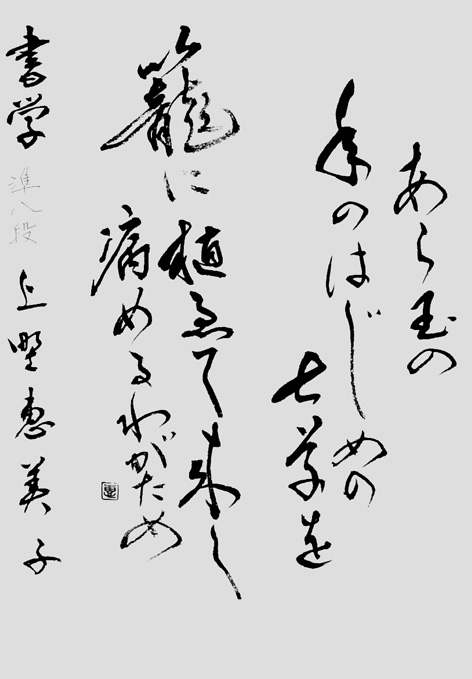 あら玉の
年のはじめの
七草を
籠に植ゑて来し
病めるわがため
書学 準八段 上野恵美子